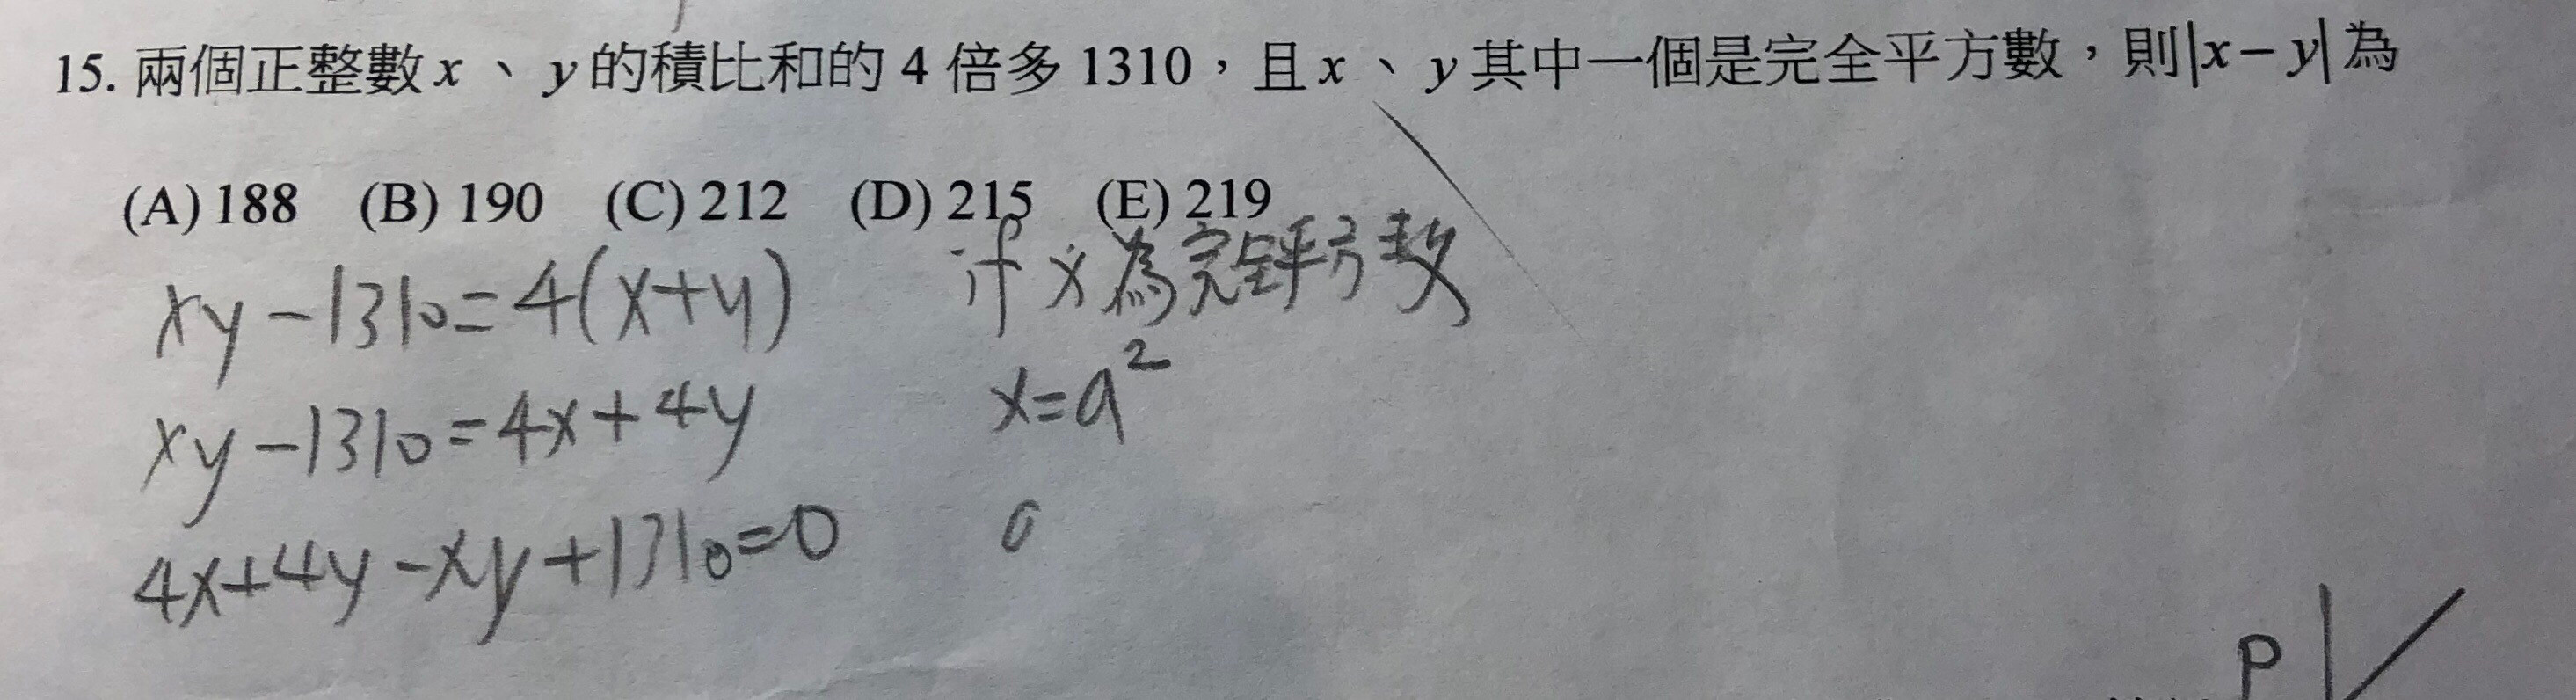 15. 兩個正整數 x、y 的積比和的 4 倍多 1310，且 x、y 其中一個是完全平方數，則|x−y|為
(A) 188 (B) 190 (C) 212 (D) 215 (E) 219
xy-1310=4(x+y) if x為完全平方數
xy-1310=4x+4y x=a²
4x+4y-xy+1310=0 a
P